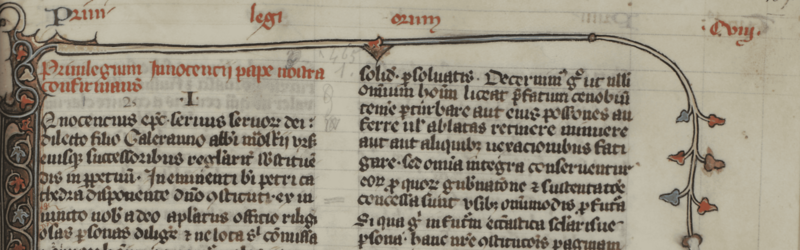 Priui legi orum C viij.
Priuilegium Innocentii pape nostra
confirmans
.I.
Innocentius epc seruus seruor dei :
dilecto filio Galeranno abbi
eiusq; successoribus reglarit substituē
dis in ppetuū. In eminenti bi petri ca
thedra disponente dnō ostituti. ex in
iuncto uob a deo aplatus officio religi
osas psonas dilige ⁊ ne lota sc̄i cōmissa
solid. psoluatis. Decernimꝰ gͦ ut ulli
omium hoim liceat pfatum cenobiū
temē pturbare aut eius possiones au
ferre ul ablatas retinere minuere
aut aut aliquibꝫ uexacionibus fati
gare. sed omīa integra conseruentur
eoꝝ p quoꝝ gubnatōne ⁊ sustentatōe
concessa sunt usibꝫ omnimodis pfutā
Si qua gͦ in futm ecclastica sclarisue
psona. hanc nre ostitucois paginam